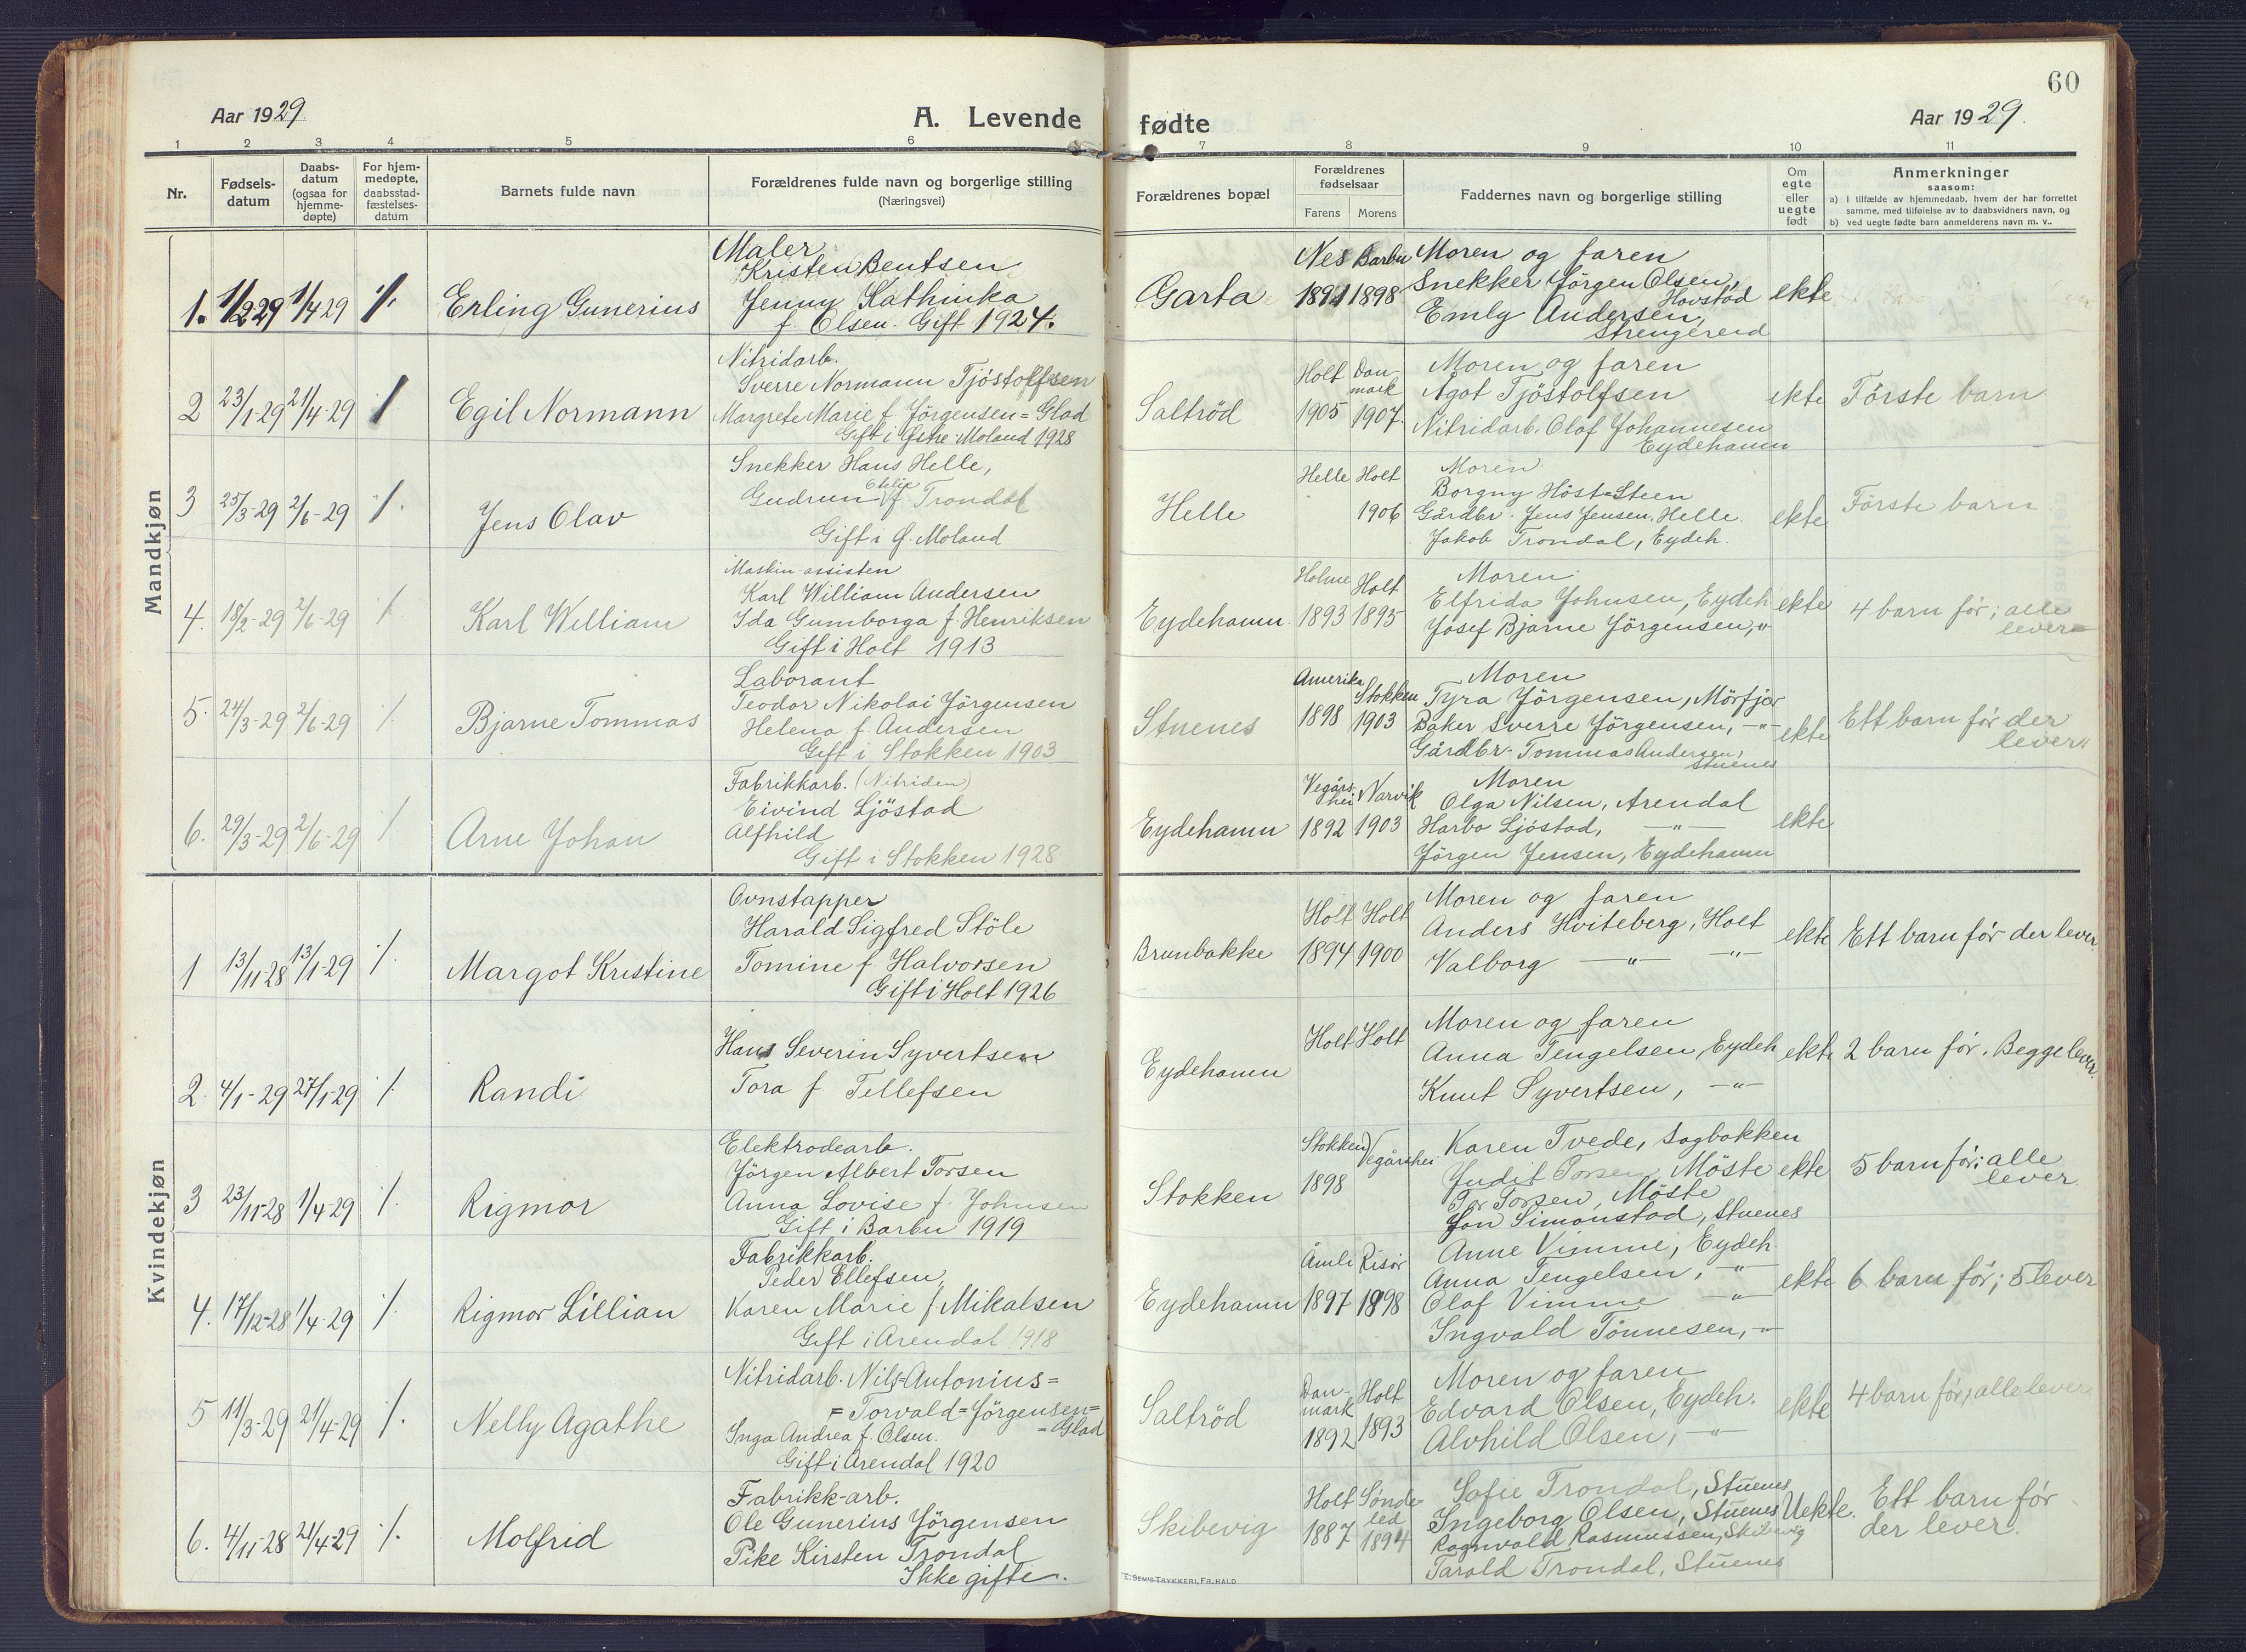 60
Aar 1929.
A. Levende
fødte
Aar 1929.
1 2 3 4 5 6 7 8 9 10 11
Nr.
Fødsels-
datum
Daabs-
datum
(ogsaa for
hjemme-
døpte)
For hjem-
medøpte,
daabsstad-
fæstelses-
datum
Barnets fulde navn
Forældrenes fulde navn og borgerlige stilling
(Næringsvei)
Forældrenes bopæl
Forældrenes
fødselsaar
Farens Morens
Faddernes navn og borgerlige stilling
Om
egte
eller
uegte
født
Anmerkninger
saasom:
a) i tilfælde av hjemmedaab, hvem der har forrettet
samme, med tilføielse av to daabsvidners navn, og
b) ved uegte fødte barn anmelderens navn m. v..
Mandkjøn
1. 1/2 29 1/4 29 %.
Erling Gunerius
Maler
Kristen Bentsen
Jenny Kathinka
f. Olsen. Gift 1924.
Garta
Nes Barbu
1891 1898
Moren og faren
Snekker Jörgen Olsen,
Hovstad
Emly Andersen,
Strengereid
ekte
2 23/1-29 21/4-29
Egil Normann
Nitridarb.
Sverre Normann Tjöstolfsen
Margrete Marie f. Jörgensen=Glad
Gift i Østre Moland 1928
Saltröd
Holt Dan-
mark
1905 1907.
Moren og faren
Ågot Tjöstolfsen
Nitridarb. Olaf Johannesen
Eydehamn
ekte
Förste barn
3 25/3-29 2/6-29 %.
Jens Olav
Snekker Hans Helle,
Gudrun f Trondal
Gift i Ø. Moland
Helle
Helle Holt
1906
Moren
Borgny Höst=Steen
Gårdbr. Jens Jensen, Helle.
Jakob Trondal, Eydeh.
ekte
Förste barn
4. 18/2-29 2/6-29 %
Karl William
Maskin assisten
Karl William Andersen
Ida Gumborga f. Henriksen
Gift i Holt 1913
Eydehamn
Holme Holt
1893 1895
Moren
Elfrida Johnsen, Eydeh
Josef Bjarne Jörgensen, "
ekte
4 barn för; alle
lever
5. 24/3-29 2/6-29 %.
Bjarne Tommas
Laborant
Teodor Nikolai Jörgensen
Helena f. Andersen
Gift i Stokken 1903
Stuenes
Amerika Stokken
1898 1903
Moren
Tyra Jörgensen, Mörfjær
Baker Sverre Jörgensen, -"-
Gårdbr. Tommas Andersen,
Stuenes
ekte
Ett barn för der
lever
6. 29/3-29 2/6-29 %
Arne Johan
Fabrikkarb. (Nitriden)
Eivind Ljöstad
Alfhild
Gift i Stokken 1928
Eydehamn
Vegårs-
hei Narvik
1892 1903
Moren
Olga Nilsen, Arendal
Harbo Ljöstad, -"-
Jörgen Jensen, Eydehamn
ekte
Kvindekjøn
1 13/11-28 13/1-29 %.
Margot Kristine
Ovnstapper
Harald Sigfred Stöle
Tomine f Halvorsen
Gift i Holt 1926
Brunbakke
Holt Holt
1894 1900
Moren og faren
Anders Hviteberg, Holt
Valborg -"- -"-
ekte
Ett barn för der lever.
2. 4/1-29 27/1-29 %.
Randi
Hans Severin Syvertsen
Tora f Tellefsen
Eydehamn
Holt Holt
Moren og faren
Anna Tengelsen, Eydeh
Knut Syvertsen, -"-
ekte
2 barn för. Begge lever.
3 23/11-28 1/4-29 %.
Rigmor
Elektrodearb.
Jörgen Albert Torsen
Anna Lovise f. Johnsen
Gift i Barbu 1919
Stokken
Stokken Vegårshei
1898
Karen Tvede, Sagbakken
Judit Torsen, Möste
Tor Torsen, Möste
Jon Simonstad, Stuenes
ekte
5 barn för; alle
lever.
4. 17/12-28 1/4-29 %.
Rigmor Lillian
Fabrikkarb.
Peder Ellefsen,
Karen Marie f Mikalsen
Gift i Arendal 1918
Eydehamn
Åmli Risör
1897 1898
Anne Vimme, Eydeh.
Anna Tengelsen, -"-
Olaf Vimme -"-
Ingvald Tönnesen, -"-
ekte
6 barn för; 5 lever
5 11/3-29 21/4-29 %.
Nelly Agathe
Nitridarb. Nils=Antonius=
=Torvald=Jörgensen=
=Glad
Inga Andrea f. Olsen.
Gift i Arendal 1920
Saltröd
Dan-
mark Holt
1892 1893
Moren og faren
Edvard Olsen, Eydeh.
Alvhild Olsen, -"-
ekte
4 barn för; alle lever
6. 4/11-28 21/4-29 %.
Molfrid
Fabrikk-arb.
Ole Gunerius Jörgensen
Pike Kirsten Trondal
Ikke gifte.
Skibevig
Holt Sønde-
led
1887 1894
Sofie Trondal, Stuenes
Ingeborg Olsen, Stuenes
Ragnvald Rasmussen, Skibevig
Tarald Trondal, Stuenes
Uekte.
Ett barn för
der lever.
E. SEM'S TRYKKERI, FR.HALD